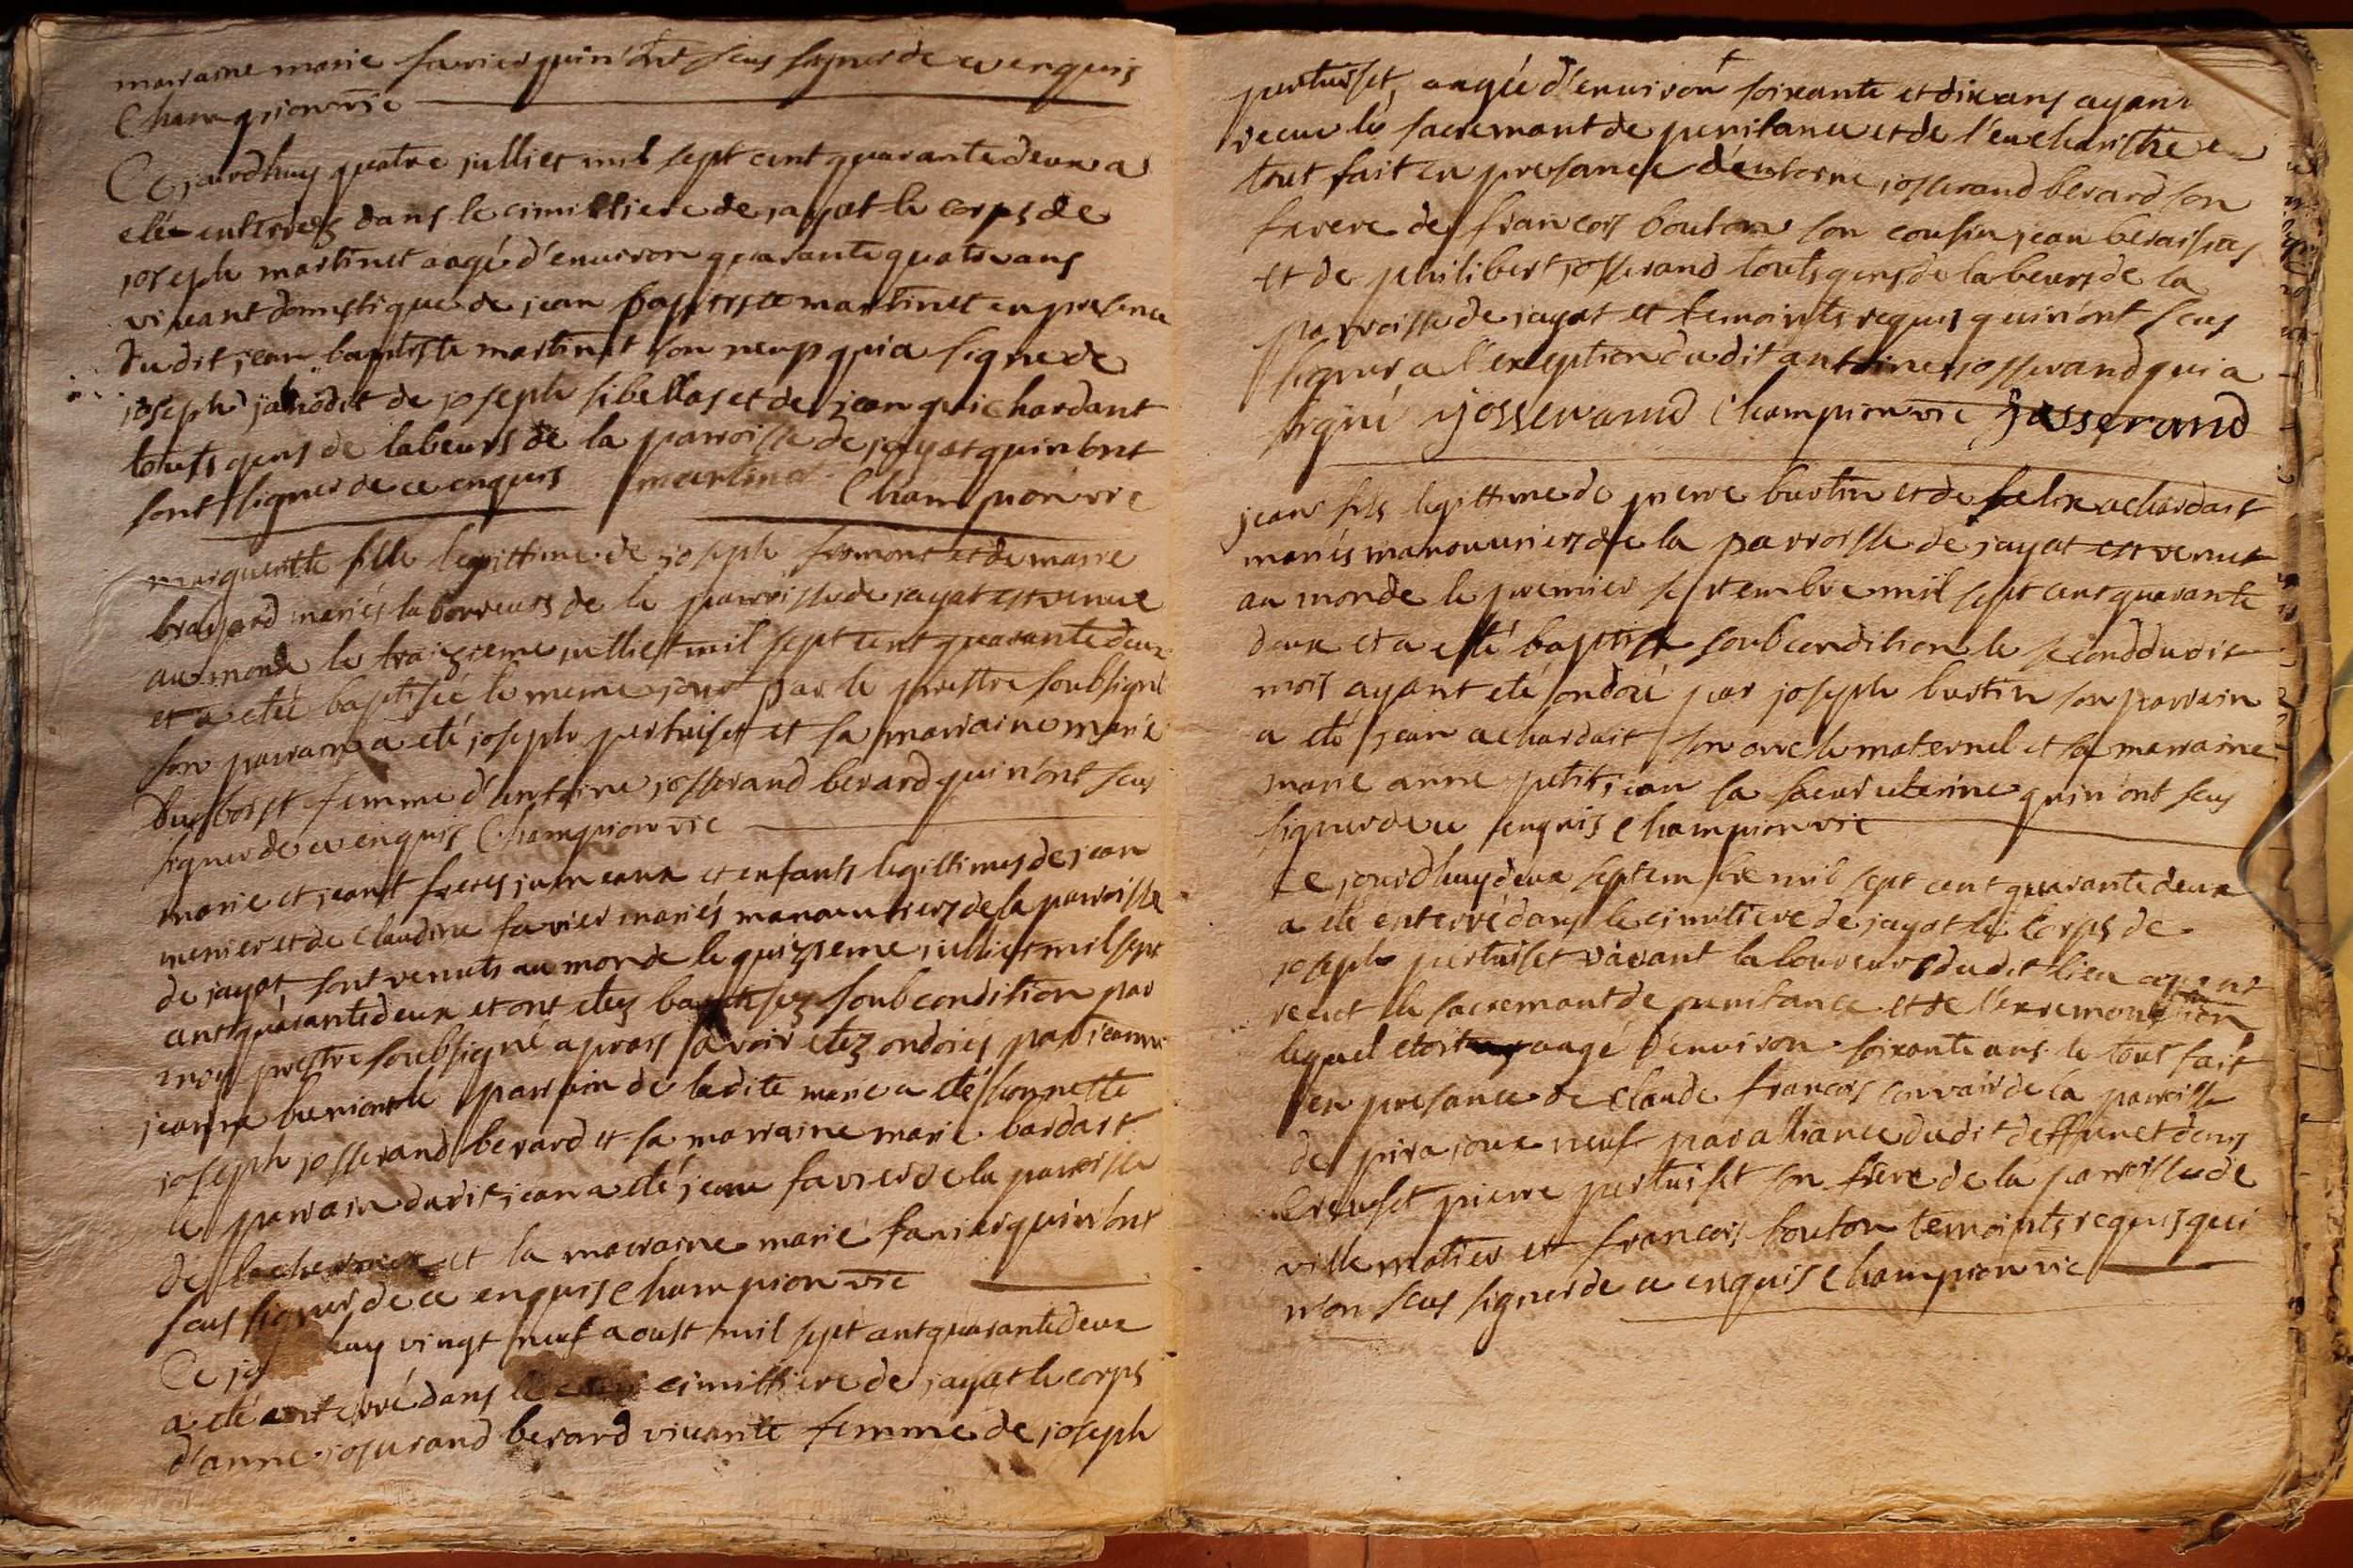 marraine marie favier qui n'ont seus signer de ce enquis
Championvic
Ce jourdhuy quatre julliet mil sept cent quarante deux a
eté enterrez dans le cimittiere de jayat le corps de
joseph martinet aagé d'environ quarante quatre ans
vivant domestique de jean baptiste martinet en presence
du dit jean baptiste martinet son neup qui a signe de
joseph de joseph sibellas et de jean guichardant
touts gens de labeurs de la parroisse de jayat qui n'ont
sont signer de ce enquis martinet Championvic
margueritte fille legittime de joseph et de marie
mariés laborreurs de la parroisse de jayat est venue
au monde le traizieme julliet mil sept cent quarante deux
et a etéé baptisée le meme jour par le prestre soubsigné
son parrain a eté joseph pertuiset et sa marraine marie
duboist femme d'antoine josserand berard qui n'ont seus
signer de ce enquis Championvic
marie et jeant freres jumeaux et enfants legittimes de jean
menier et de claudine favier mariés manouvriers de la parroisse
de jayat sont venuts au monde le quizieme julliet mil sept
cent quarante deux et ont etez baptisez soub condition par
moy prestre soubsigné apprais avoir etez ondoiés par jeanne
jeanne parrain de ladite marie a eté honnette
joseph josserand berard et sa marraine marie bardast
le parrain dudit jean a eté jean favier de la parroisse
de et la marraine marie favier qui n'ont
seus signer de ce enquis Championvic
Ce jo huy vingt neuf aoust mil sept cent quarante deux
a eté enterré dans le cimittiere de jayat le corps
d'anne josserand berard vivante femme de joseph
pertuiset, aagée d'environ soixante et dix ans ayant
receue les sacremant de penitance et de l'eucharistie
tout fait en presance d'entoine josserand berard son
frere de francois bouton son cousin jean
et de philibert josserand touts gens de labeurs de la
parroisse de jayat et temoints requis qui n'ont seus
signer a l'exeption du dit antoine josserand qui a
signé josserand Championvic Josserand
jean fils legittime de pierre burtin et de felix achardait
mariés manouvriers de la parroisse de jayat est venut
au monde le premier septembre mil sept cent quarante
deux et a esté baptisé soub condition le second dudit
mois ayant eté ondoié par joseph burtin son parrain
a eté jean achardait son oncle maternel et sa marraine
marie anne petitjean sa saeur uterine qui n'ont seus
signer de ce enquis Championvic
Ce jourdhuy deux septembre mil sept cent quarante deux
a eté enterré dans le cimitiere de jayat le corps de
joseph pertuiset vivant laboureur dudit lieu ayant
receut le sacremant de penitance et de l'exremonction
lequel etoit aagé d'environ soixante ans le tout fait
en presance de claude francois convair de la parroisse
de pirajoux neuf par alliance dudit deffunct denis
creuset pierre pertuiset son frere de la parroisse de
ville motier et francois bouton temoints requis qui
n'on seus signer de ce enquis Championvic